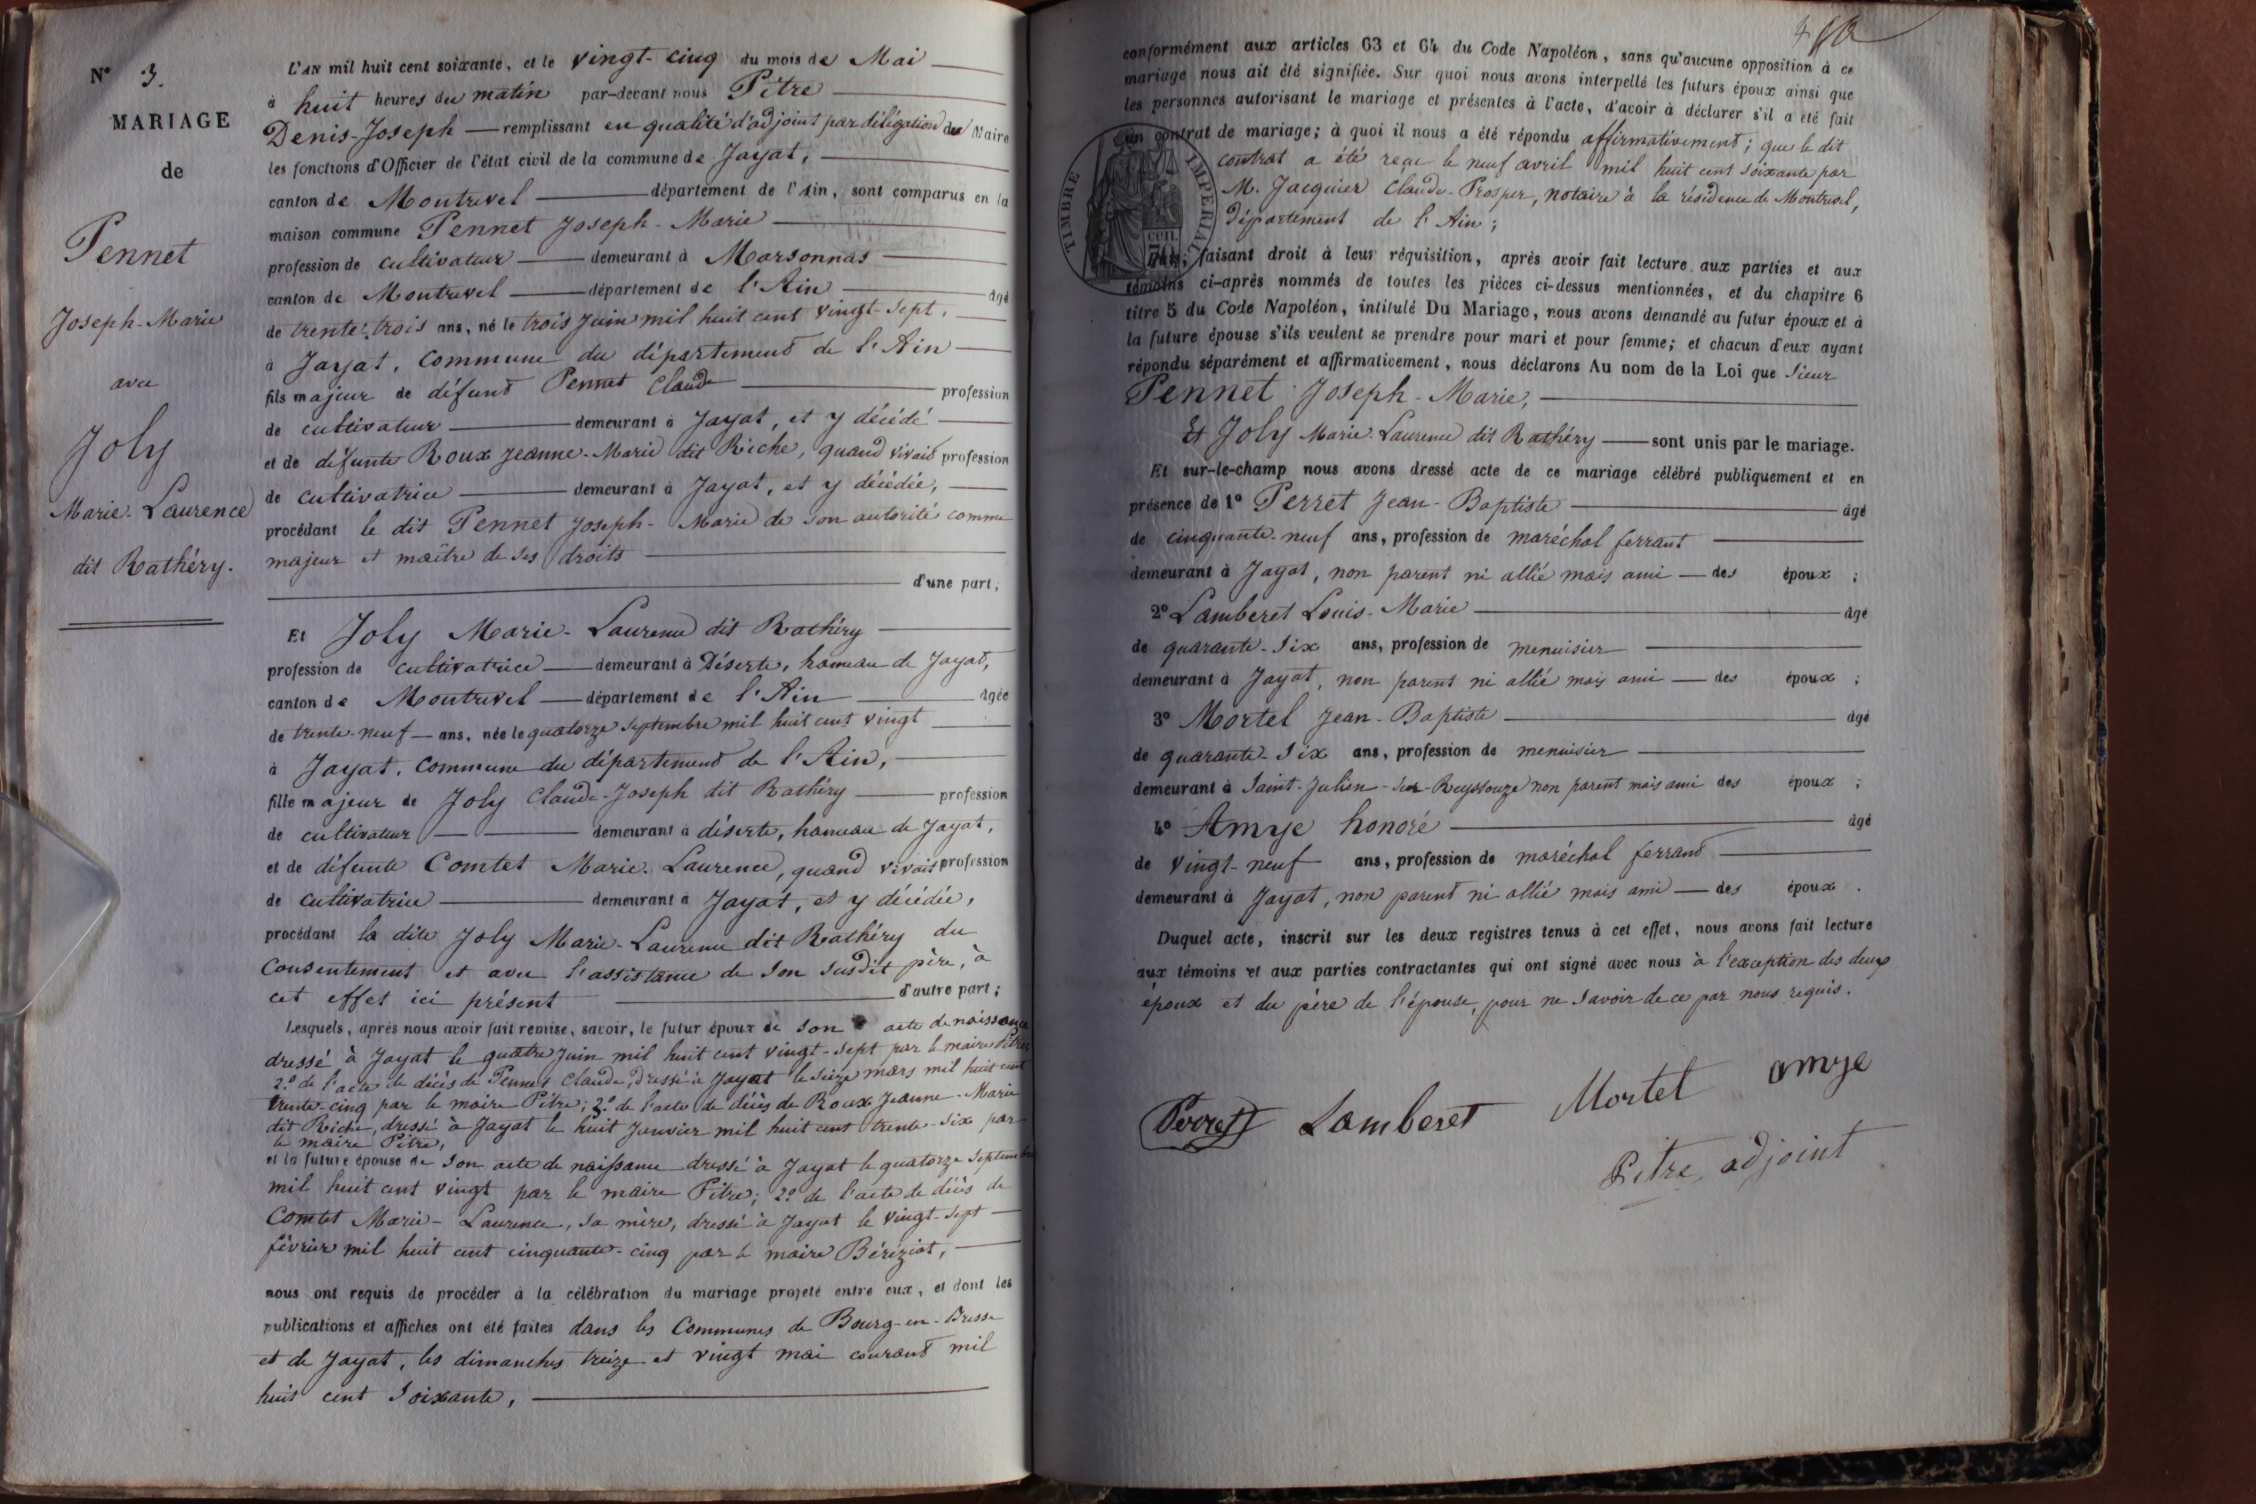 N° 3.
MARIAGE
de
Pennet
Joseph-Marie
avec
Joly
Marie-Laurence
dit Rathéry.
L'AN mil huit cent soixante, et le vingt-cinq du mois de Mai
à huit heures du matin par-devant nous Pitre
Denis-Joseph remplissant en qualité d'adjoint par délégation du Maire
les fonctions d'Officier de l'état civil de la commune de Jayat,
canton de Montrevel département de l'Ain, sont comparus en la
maison commune Pennet Joseph-Marie
profession de cultivateur demeurant à Marsonnas
canton de Montrevel département de l'Ain âgé
de trente-trois ans, né le trois Juin mil huit cent vingt-sept,
à Jayat, commune du département de l'Ain
fils majeur de défunt Pennet Claude profession
de cultivateur demeurant à Jayat, et y décédé
et de défunte Roux Jeanne-Marie dit Riche, quand vivait profession
de cultivatrice demeurant à Jayat, et y décédée,
procédant le dit Pennet Joseph-Marie de son autorité comme
majeur et maître de ses droits
d'une part;
Et Joly Marie-Laurence dit Rathéry
profession de cultivatrice demeurant à Déserte, hameau de Jayat,
canton de Montrevel département de l'Ain âgée
de trente-neuf ans, née le quatorze septembre mil huit cent vingt
à Jayat, commune du département de l'Ain,
fille majeur de Joly Claude-Joseph dit Rathéry profession
de cultivateur demeurant à déserte, hameau de Jayat,
et de défunte Comtet Marie-Laurence, quand vivait profession
de cultivatrice demeurant à Jayat, et y décédée,
procédant la dite Joly Marie-Laurence dit Rathéry du
consentement et avec l'assistance de son susdit père, à
cet effet ici présent d'autre part;
Lesquels, après nous avoir fait remise, savoir, le futur époux de son acte de naissance
dressé à Jayat le quatre Juin mil huit cent vingt-sept par le maire Pitre;
2.° de l'acte de décès de Pennet Claude, dressé à Jayat le seize mars mil huit cent
trente-cinq par le maire Pitre; 3.° de l'acte de décès de Roux Jeanne-Marie
dit Riche, dressé à Jayat le huit Janvier mil huit cent trente-six par
le maire Pitre,
et la future épouse de son acte de naissance dressé à Jayat le quatorze septembre
mil huit cent vingt par le maire Pitre; 2.° de l'acte de décès de
Comtet Marie-Laurence, sa mère, dressé à Jayat le vingt-sept
février mil huit cent cinquante-cinq par le maire Béréziat,
nous ont requis de procéder à la célébration du mariage projeté entre eux, et dont les
publications et affiches ont été faites dans les Communes de Bourg-en-Bresse
et de Jayat, les dimanches treize et vingt mai courant mil
huit cent soixante,
conformément aux articles 63 et 64 du Code Napoléon, sans qu'aucune opposition à ce
mariage nous ait été signifiée. Sur quoi nous avons interpellé les futurs époux ainsi que
les personnes autorisant le mariage et présentes à l'acte, d'avoir à déclarer s'il a été fait
un contrat de mariage; à quoi il nous a été répondu affirmativement; que le dit
contrat a été reçu le neuf avril mil huit cent soixante par
M. Jacquier Claude-Prosper, notaire à la résidence de Montrevel,
département de l'Ain;
TIMBRE IMPERIAL
CEN.
faisant droit à leur réquisition, après avoir fait lecture aux parties et aux
témoins ci-après nommés de toutes les pièces ci-dessus mentionnées, et du chapitre 6
titre 5 du Code Napoléon, intitulé Du Mariage, nous avons demandé au futur époux et à
la future épouse s'ils veulent se prendre pour mari et pour femme; et chacun d'eux ayant
répondu séparément et affirmativement, nous déclarons Au nom de la Loi que sieur
Pennet Joseph-Marie,
Et Joly Marie-Laurence dit Rathéry sont unis par le mariage.
Et sur-le-champ nous avons dressé acte de ce mariage célébré publiquement et en
présence de 1° Perret Jean-Baptiste âgé
de cinquante-neuf ans, profession de maréchal ferrant
demeurant à Jayat, non parent ni allié mais ami des époux;
2° Lamberet Louis-Marie âgé
de quarante-six ans, profession de menuisier
demeurant à Jayat, non parent ni allié mais ami des époux;
3° Mortel Jean-Baptiste âgé
de quarante-six ans, profession de menuisier
demeurant à Saint-Julien-sur-Reyssouze non parent mais ami des époux;
4° Amye honoré âgé
de vingt-neuf ans, profession de maréchal ferrant
demeurant à Jayat, non parent ni allié mais ami des époux.
Duquel acte, inscrit sur les deux registres tenus à cet effet, nous avons fait lecture
aux témoins et aux parties contractantes qui ont signé avec nous à l'exception des deux
époux et du père de l'épouse, pour ne savoir de ce par nous requis.
Perret Lamberet Mortel amye
Pitre, adjoint